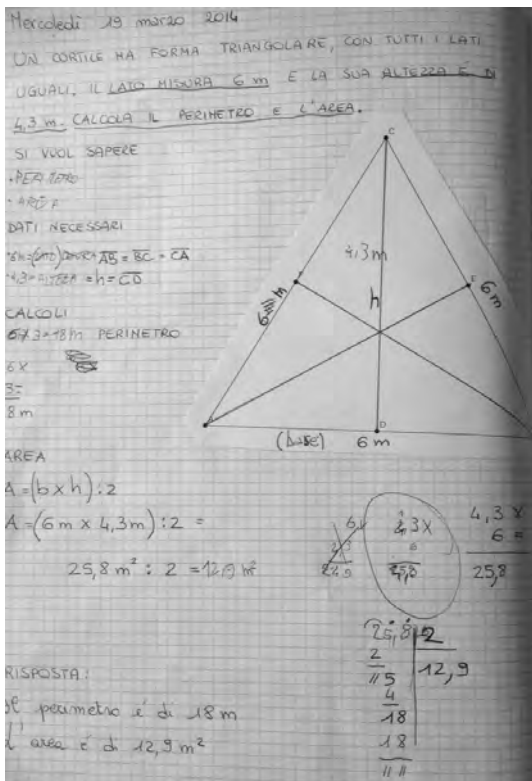 Mercoledì 19 marzo 2014
UN CORTILE HA FORMA TRIANGOLARE, CON TUTTI I LATI
UGUALI. IL LATO MISURA 6 m E LA SUA ALTEZZA È DI
4,3 m. CALCOLA IL PERIMETRO E L'AREA.
SI VUOL SAPERE
DATI NECESSARI
AB = BC = CA
= h = CD
CALCOLI
6 x 3 = 18 m PERIMETRO
6 x
3 =
8 m
C
4,3 m
h
6 m
E
6 m
D
(base) 6 m
AREA
A = (b x h) : 2
A = (6 m x 4,3 m) : 2 =
25,8 m² : 2 = 12,9 m²
4,3 x
6 =
25,8
25,8 2
2 12,9
// 5
4
18
18
// //
RISPOSTA:
perimetro é di 18 m
L'area é di 12,9 m²